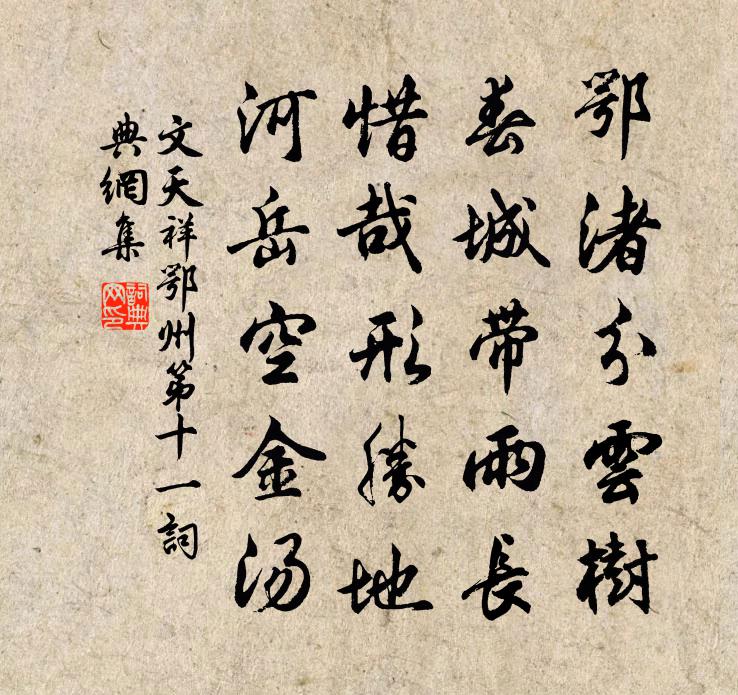 鄂渚分雲樹
春城帶雨長
惜哉形勝地
河岳空金湯
文天祥鄂州第十一詞
典網集
詞典
网印